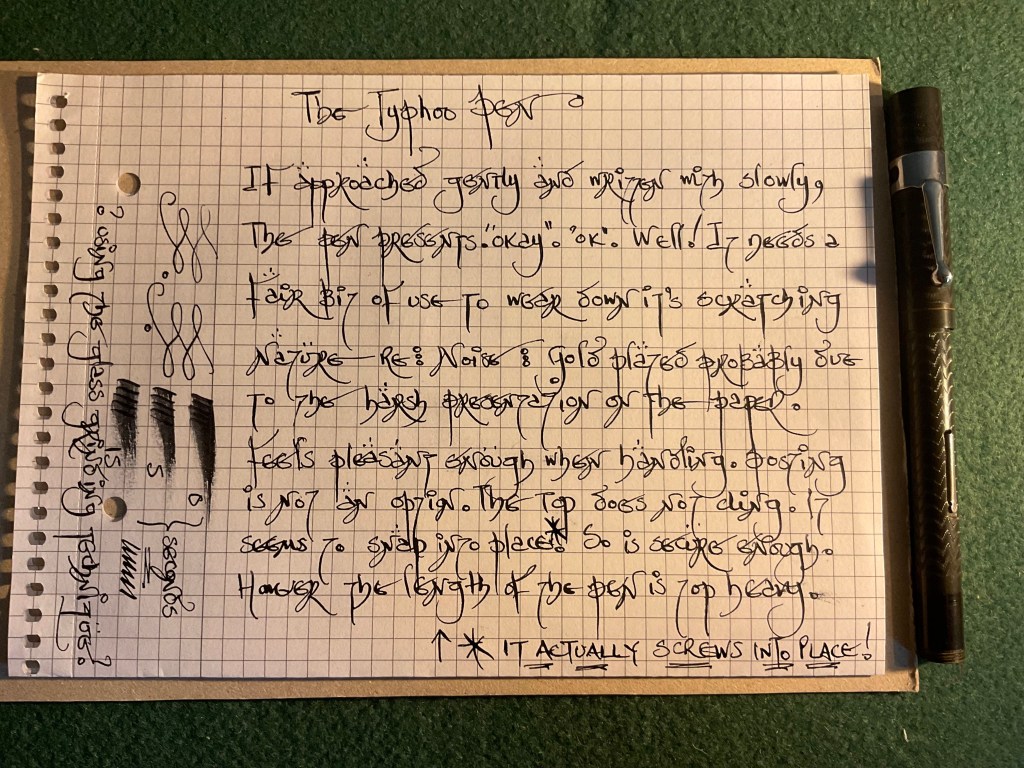 The Typhoo Pen
If approached gently and written with slowly,
The pen presents. "okay". "ok". Well! It needs a
fair bit of use to wear down it's scratching
Nature - Re: Noise: Gold plated probably due
to the harsh presentation on the paper.
Feels pleasant enough when handling. Posting
is not an option. The top does not cling. It
seems to snap into place*. So is secure enough.
However the length of the pen is top heavy.
↑ * IT ACTUALLY SCREWS INTO PLACE!
? using the glass grinding technique?
15
5
0
} seconds